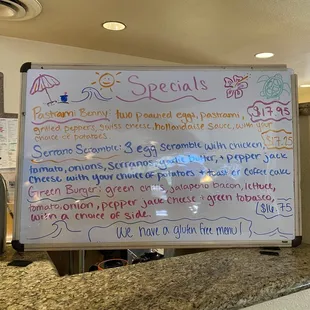 Specials
Pastrami Benny: two poached eggs, pastrami, $17.95
grilled peppers, swiss cheese, hollandaise sauce, with your
choice of potatoes.
Serrano Scramble: 3 egg scramble with chicken, $17.95
tomato, onions, serranos, + pepper jack
cheese with your choice of potatoes + toast or coffee cake
Green Burger: green chiles, jalapeño bacon, lettuce,
tomato, onion, pepper jack cheese + green tobasco,
with a choice of side. $16.75
We have a gluten free menu!